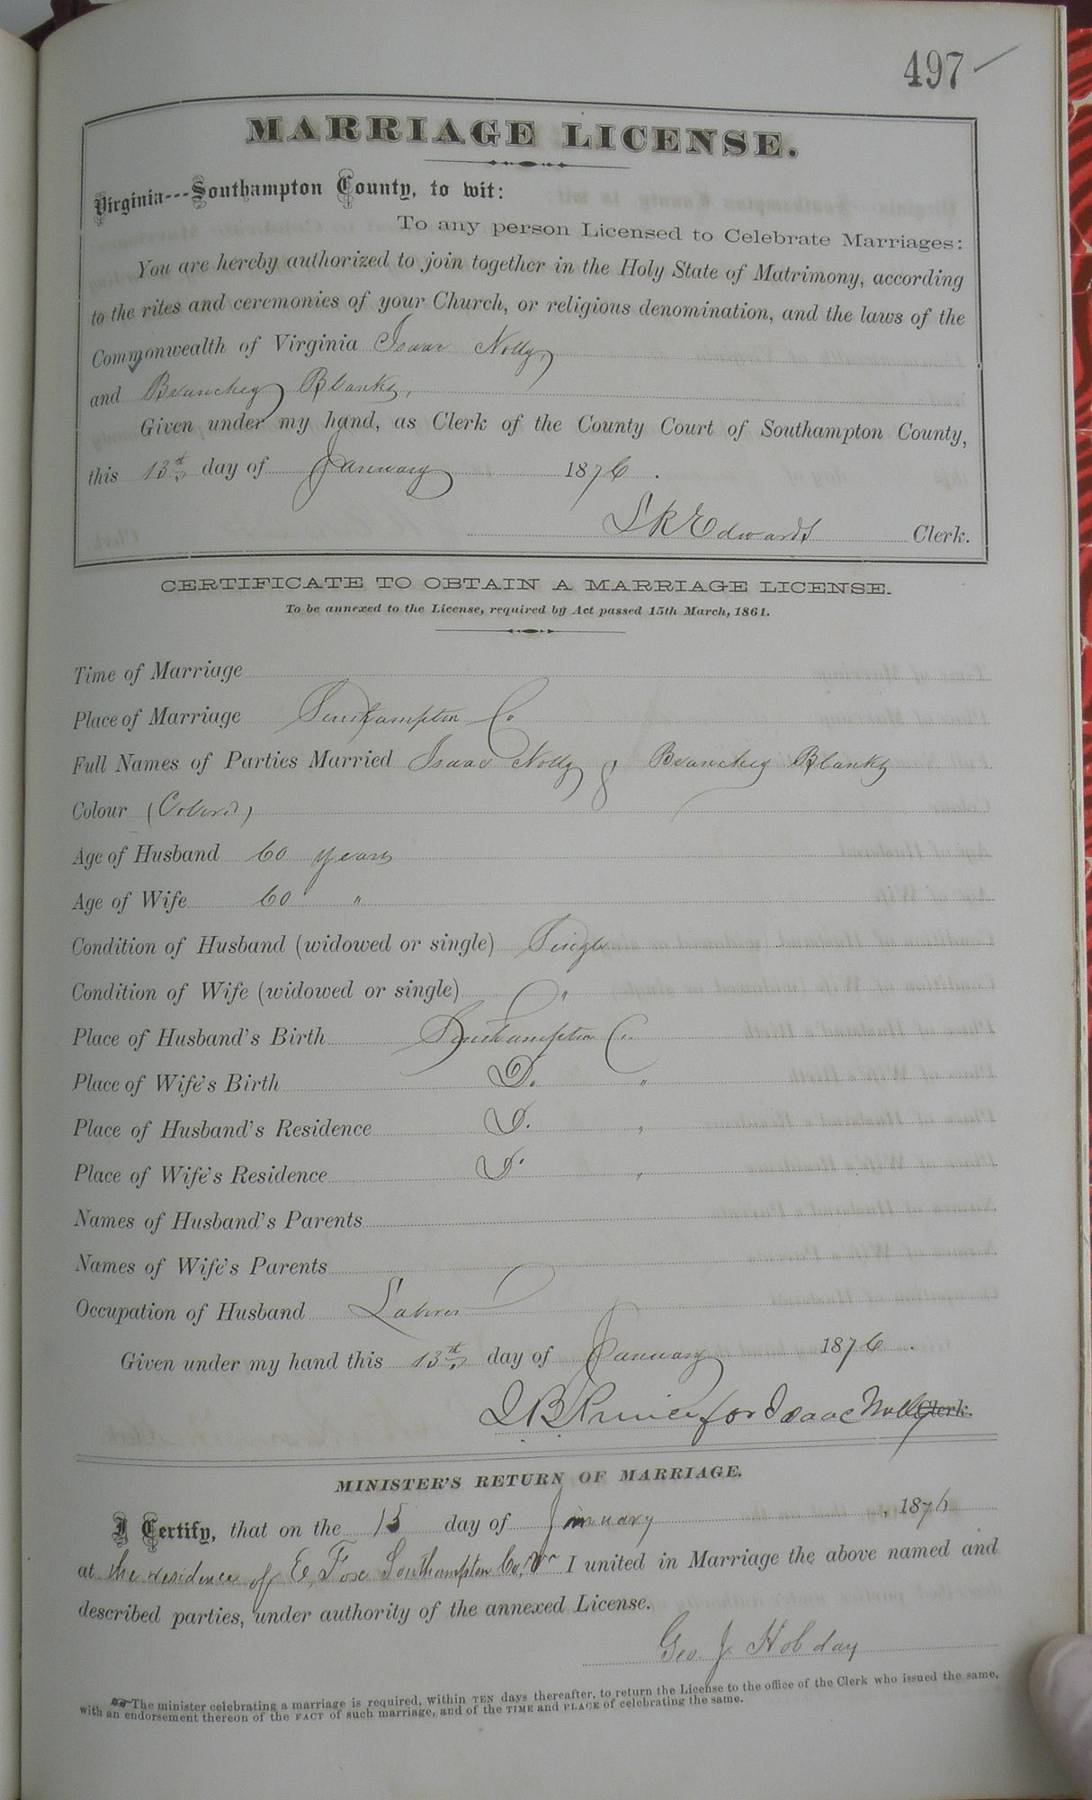 497
MARRIAGE LICENSE.
Virginia---Southampton County, to wit:
To any person Licensed to Celebrate Marriages:
You are hereby authorized to join together in the Holy State of Matrimony, according
to the rites and ceremonies of your Church, or religious denomination, and the laws of the
Commonwealth of Virginia Isaac Nolly,
and Branchey Blanks,
Given under my hand, as Clerk of the County Court of Southampton County,
this 13th day of January 1876.
L R Edwards Clerk.
CERTIFICATE TO OBTAIN A MARRIAGE LICENSE.
To be annexed to the License, required by Act passed 15th March, 1861.
Time of Marriage
Place of Marriage Southampton Co
Full Names of Parties Married Isaac Nolly & Branchey Blanks
Colour (Colored)
Age of Husband 60 years
Age of Wife 60 "
Condition of Husband (widowed or single) Single
Condition of Wife (widowed or single) "
Place of Husband's Birth Southampton Co.
Place of Wife's Birth D. "
Place of Husband's Residence D. "
Place of Wife's Residence D. "
Names of Husband's Parents
Names of Wife's Parents
Occupation of Husband Laborer
Given under my hand this 13th day of January 1876.
J B Prince for Isaac Nolly Clerk.
MINISTER'S RETURN OF MARRIAGE.
I Certify, that on the 15 day of January, 1876
at the residence of E. Fox Southampton Co, Va I united in Marriage the above named and
described parties, under authority of the annexed License.
Geo J Hobday
The minister celebrating a marriage is required, within TEN days thereafter, to return the License to the office of the Clerk who issued the same,
with an endorsement thereon of the FACT of such marriage, and of the TIME and PLACE of celebrating the same.